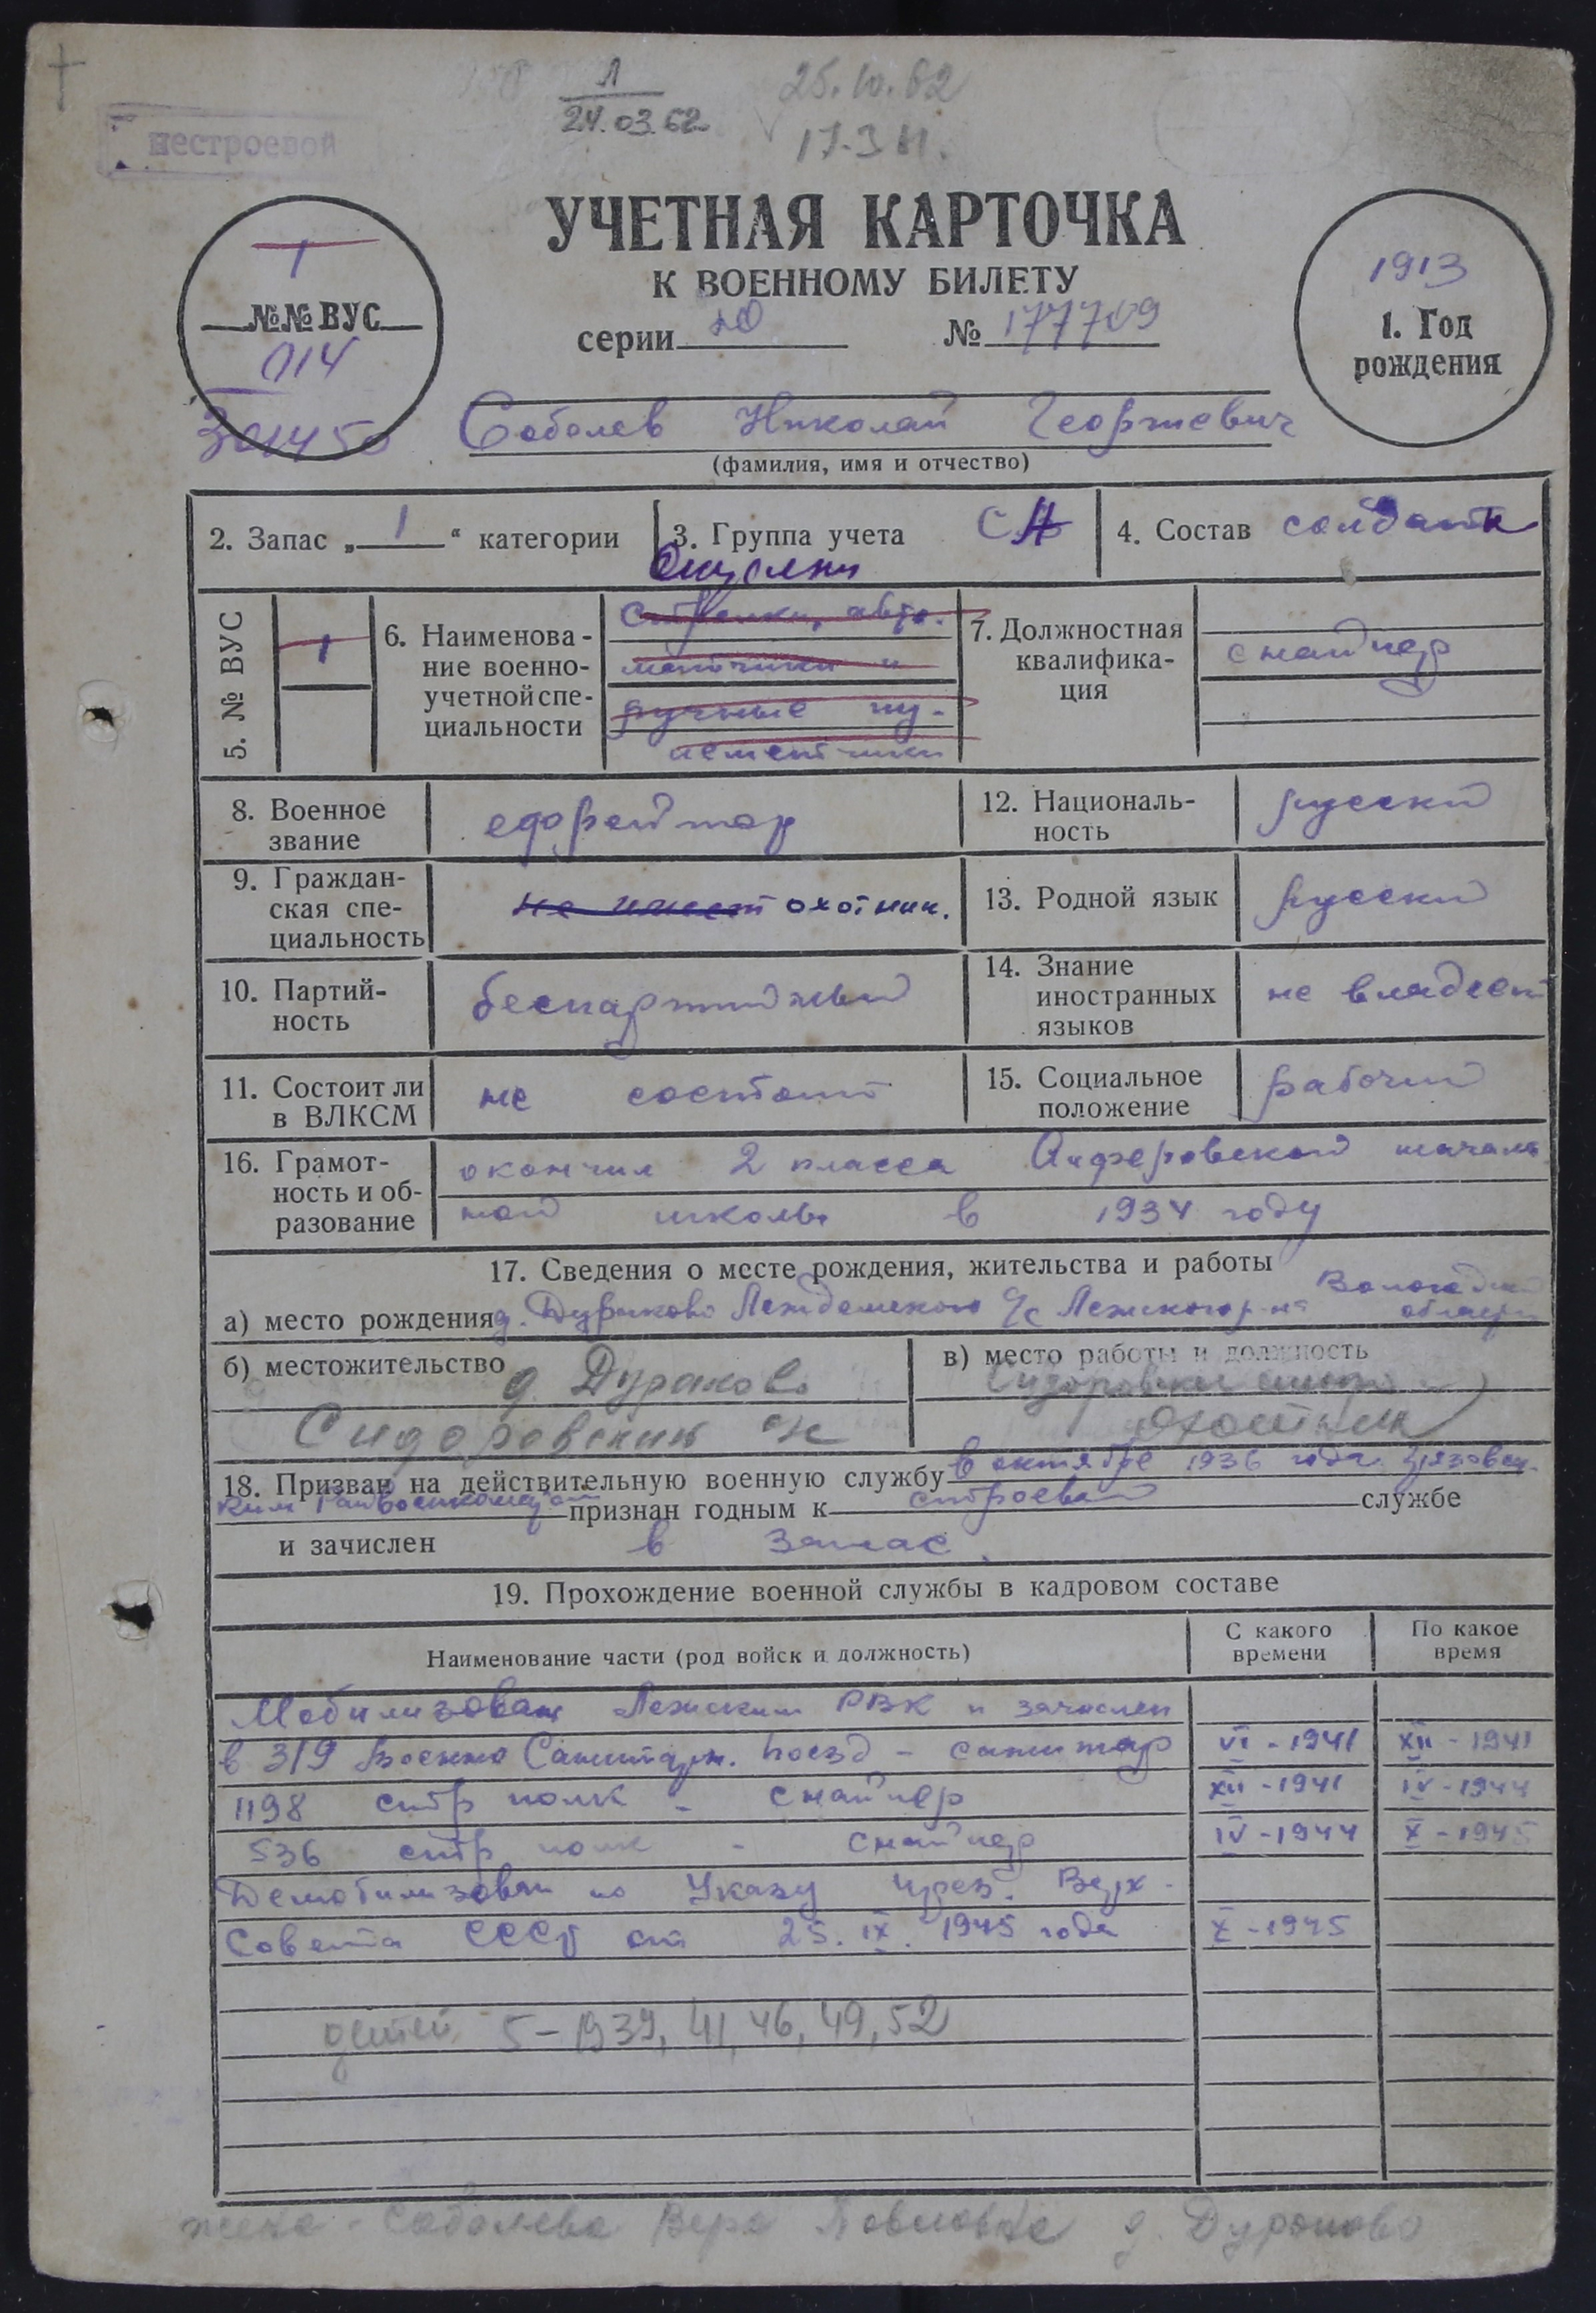 Л
24.03.62
25.10.62
17.3 61.
нестроевой
УЧЕТНАЯ КАРТОЧКА
К ВОЕННОМУ БИЛЕТУ
серии №
1
№№ ВУС
014
301450
1913
1. Год
рождения
Соболев Николай Георгиевич
(фамилия, имя и отчество)
2. Запас „ 1 “ категории
3. Группа учета СА
4. Состав солдаты
5. № ВУС
1
6. Наименова-
ние военно-
учетной спе-
циальности
стрелки, авто-
матчики и
ручные пу-
леметчики
7. Должностная
квалифика-
ция
снайпер
8. Военное
звание
ефрейтор
12. Националь-
ность
русский
9. Граждан-
ская спе-
циальность
не имеет охотник.
13. Родной язык
русский
10. Партий-
ность
беспартийный
14. Знание
иностранных
языков
не владеет
11. Состоит ли
в ВЛКСМ
не состоит
15. Социальное
положение
рабочий
16. Грамот-
ность и об-
разование
окончил 2 класса Анферовской началь
ной школы в 1934 году
17. Сведения о месте рождения, жительства и работы
а) место рождения д. Дураково с/с Лежского р-на Вологодской
области
б) местожительство д. Дураково
Сидоровский с/с
в) место работы и должность
охотник
18. Призван на действительную военную службу в октябре 1936 года Грязовец-
ким Райвоенкоматом признан годным к строевой службе
и зачислен в запас.
19. Прохождение военной службы в кадровом составе
Наименование части (род войск и должность)
С какого
времени
По какое
время
Мобилизован Лежским РВК и зачислен
в 319 Военно Санитарн. поезд - санитар VI - 1941 XII - 1941
1198 стр полк - снайпер XII - 1941 IV - 1944
536 стр полк - снайпер IV - 1944 X - 1945
Демобилизован по Указу през. Верх-
Совета СССР от 25. IX. 1945 года X - 1945
детей 5 - 1939, 41, 46, 49, 52
жена - Соболева Вера Павловна д. Дураково